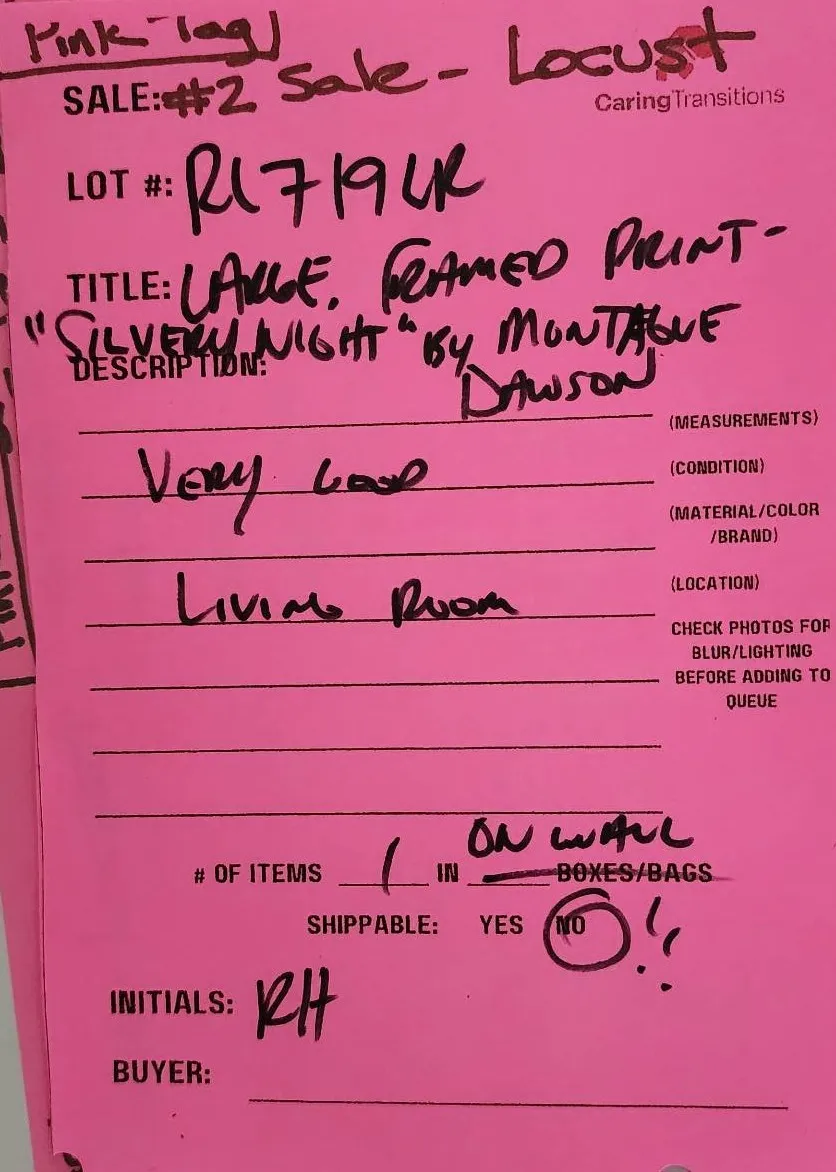 Pink Tag
SALE: #2 Sale - Locust
CaringTransitions
LOT #: RL719LR
TITLE: LARGE, FRAMED PRINT-
"SILVERY NIGHT" By MONTAGUE
DESCRIPTION:
DAWSON
(MEASUREMENTS)
VERY GOOD (CONDITION)
(MATERIAL/COLOR
/BRAND)
LIVING ROOM (LOCATION)
CHECK PHOTOS FOR
BLUR/LIGHTING
BEFORE ADDING TO
QUEUE
ON WALL
# OF ITEMS 1 IN BOXES/BAGS
SHIPPABLE: YES NO !!
INITIALS: RH
BUYER: